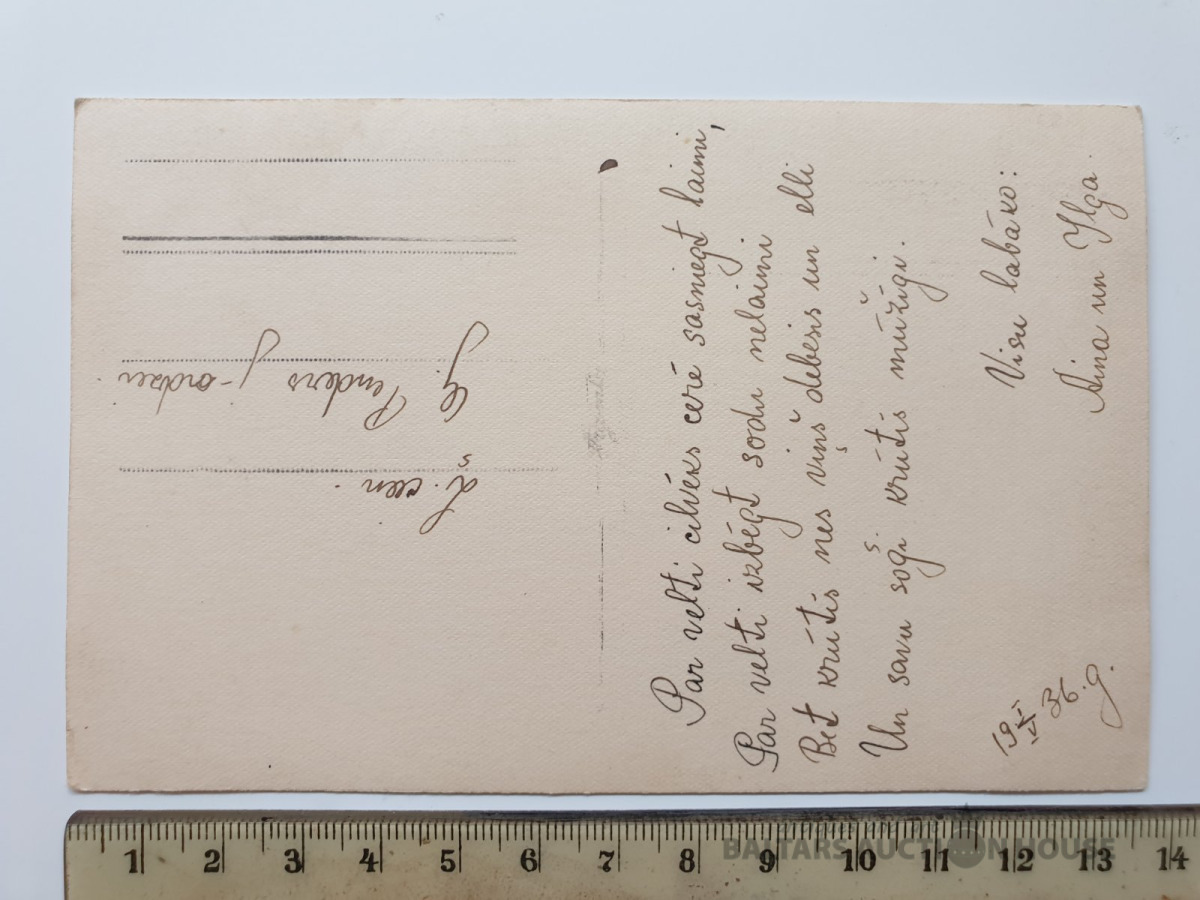 Ļ. cien.
G. Penders
Par velti cilvēks cerē sasniegt laimi,
Par velti izbēgt sodu nelaimi
Bet krūtīs nes viņš debesis un elli
Un savu soģi krūtīs mūžīgi.
Visu labāko:
Aina un Ilga.
36.g.
1 2 3 4 5 6 7 8 9 10 11 12 13 14
BALTARS AUCTION HOUSE